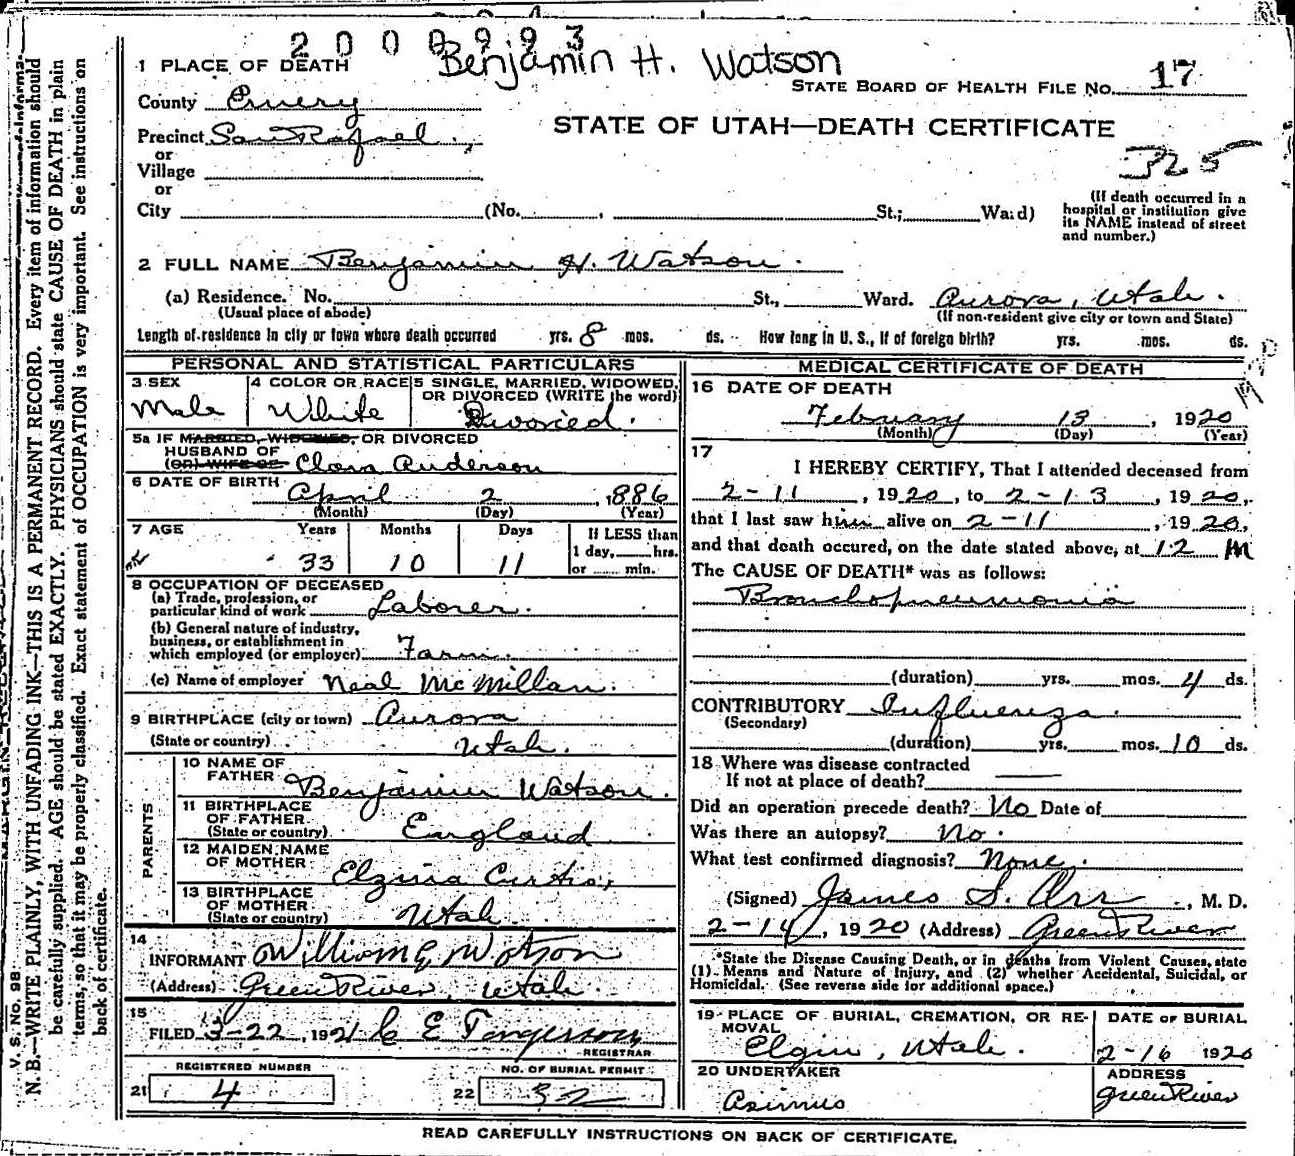 2000993
Benjamin H. Watson
1 PLACE OF DEATH
STATE BOARD OF HEALTH FILE No. 17
County Emery
STATE OF UTAH—DEATH CERTIFICATE
Precinct San Rafael
or
Village
325
or
City (No. , St.; Ward)
(If death occurred in a hospital or institution give its NAME instead of street and number.)
2 FULL NAME Benjamin H. Watson.
(a) Residence. No. St., Ward. Aurora, Utah.
(Usual place of abode) (If non-resident give city or town and State)
Length of residence in city or town where death occurred yrs. 8 mos. ds. How long in U. S., if of foreign birth? yrs. mos. ds.
PERSONAL AND STATISTICAL PARTICULARS
3 SEX
Male
4 COLOR OR RACE
White
5 SINGLE, MARRIED, WIDOWED, OR DIVORCED (WRITE the word)
Divorced.
5a IF MARRIED, WIDOWED, OR DIVORCED
HUSBAND OF
(OR) WIFE OF Clora Anderson
6 DATE OF BIRTH
April 2 , 1886
(Month) (Day) (Year)
7 AGE Years Months Days
33 10 11
If LESS than
1 day, hrs.
or min.
8 OCCUPATION OF DECEASED
(a) Trade, profession, or
particular kind of work Laborer.
(b) General nature of industry,
business, or establishment in
which employed (or employer) Farm.
(c) Name of employer Neal McMillan.
9 BIRTHPLACE (city or town) Aurora
(State or country) Utah.
PARENTS
10 NAME OF
FATHER Benjamin Watson.
11 BIRTHPLACE
OF FATHER
(State or country) England
12 MAIDEN NAME
OF MOTHER Curtis
13 BIRTHPLACE
OF MOTHER
(State or country) Utah
14
INFORMANT William G Watson
(Address) Green River, Utah
15
FILED 3-22, 1921 C E
REGISTRAR
REGISTERED NUMBER
21 4
NO. OF BURIAL PERMIT
22 32
MEDICAL CERTIFICATE OF DEATH
16 DATE OF DEATH
February 13 , 1920
(Month) (Day) (Year)
17
I HEREBY CERTIFY, That I attended deceased from
2-11 , 1920, to 2-13 , 1920,
that I last saw him alive on 2-11 , 1920,
and that death occured, on the date stated above, at 12 M
The CAUSE OF DEATH* was as follows:
Bronchopneumonia
(duration) yrs. mos. 4 ds.
CONTRIBUTORY Influenza.
(Secondary)
(duration) yrs. mos. 10 ds.
18 Where was disease contracted
If not at place of death?
Did an operation precede death? No Date of
Was there an autopsy? No.
What test confirmed diagnosis? None.
(Signed) James S. Orr , M. D.
2-14, 1920 (Address) Green River
*State the Disease Causing Death, or in deaths from Violent Causes, state
(1) Means and Nature of Injury, and (2) whether Accidental, Suicidal, or
Homicidal. (See reverse side for additional space.)
19 PLACE OF BURIAL, CREMATION, OR RE-
MOVAL
Elgin, Utah.
DATE OF BURIAL
2-16 1920
20 UNDERTAKER
ADDRESS
Green River
READ CAREFULLY INSTRUCTIONS ON BACK OF CERTIFICATE.
V. S. No. 98
N. B.—WRITE PLAINLY, WITH UNFADING INK—THIS IS A PERMANENT RECORD. Every item of information should
be carefully supplied. AGE should be stated EXACTLY. PHYSICIANS should state CAUSE OF DEATH in plain
terms, so that it may be properly classified. Exact statement of OCCUPATION is very important. See instructions on
back of certificate.